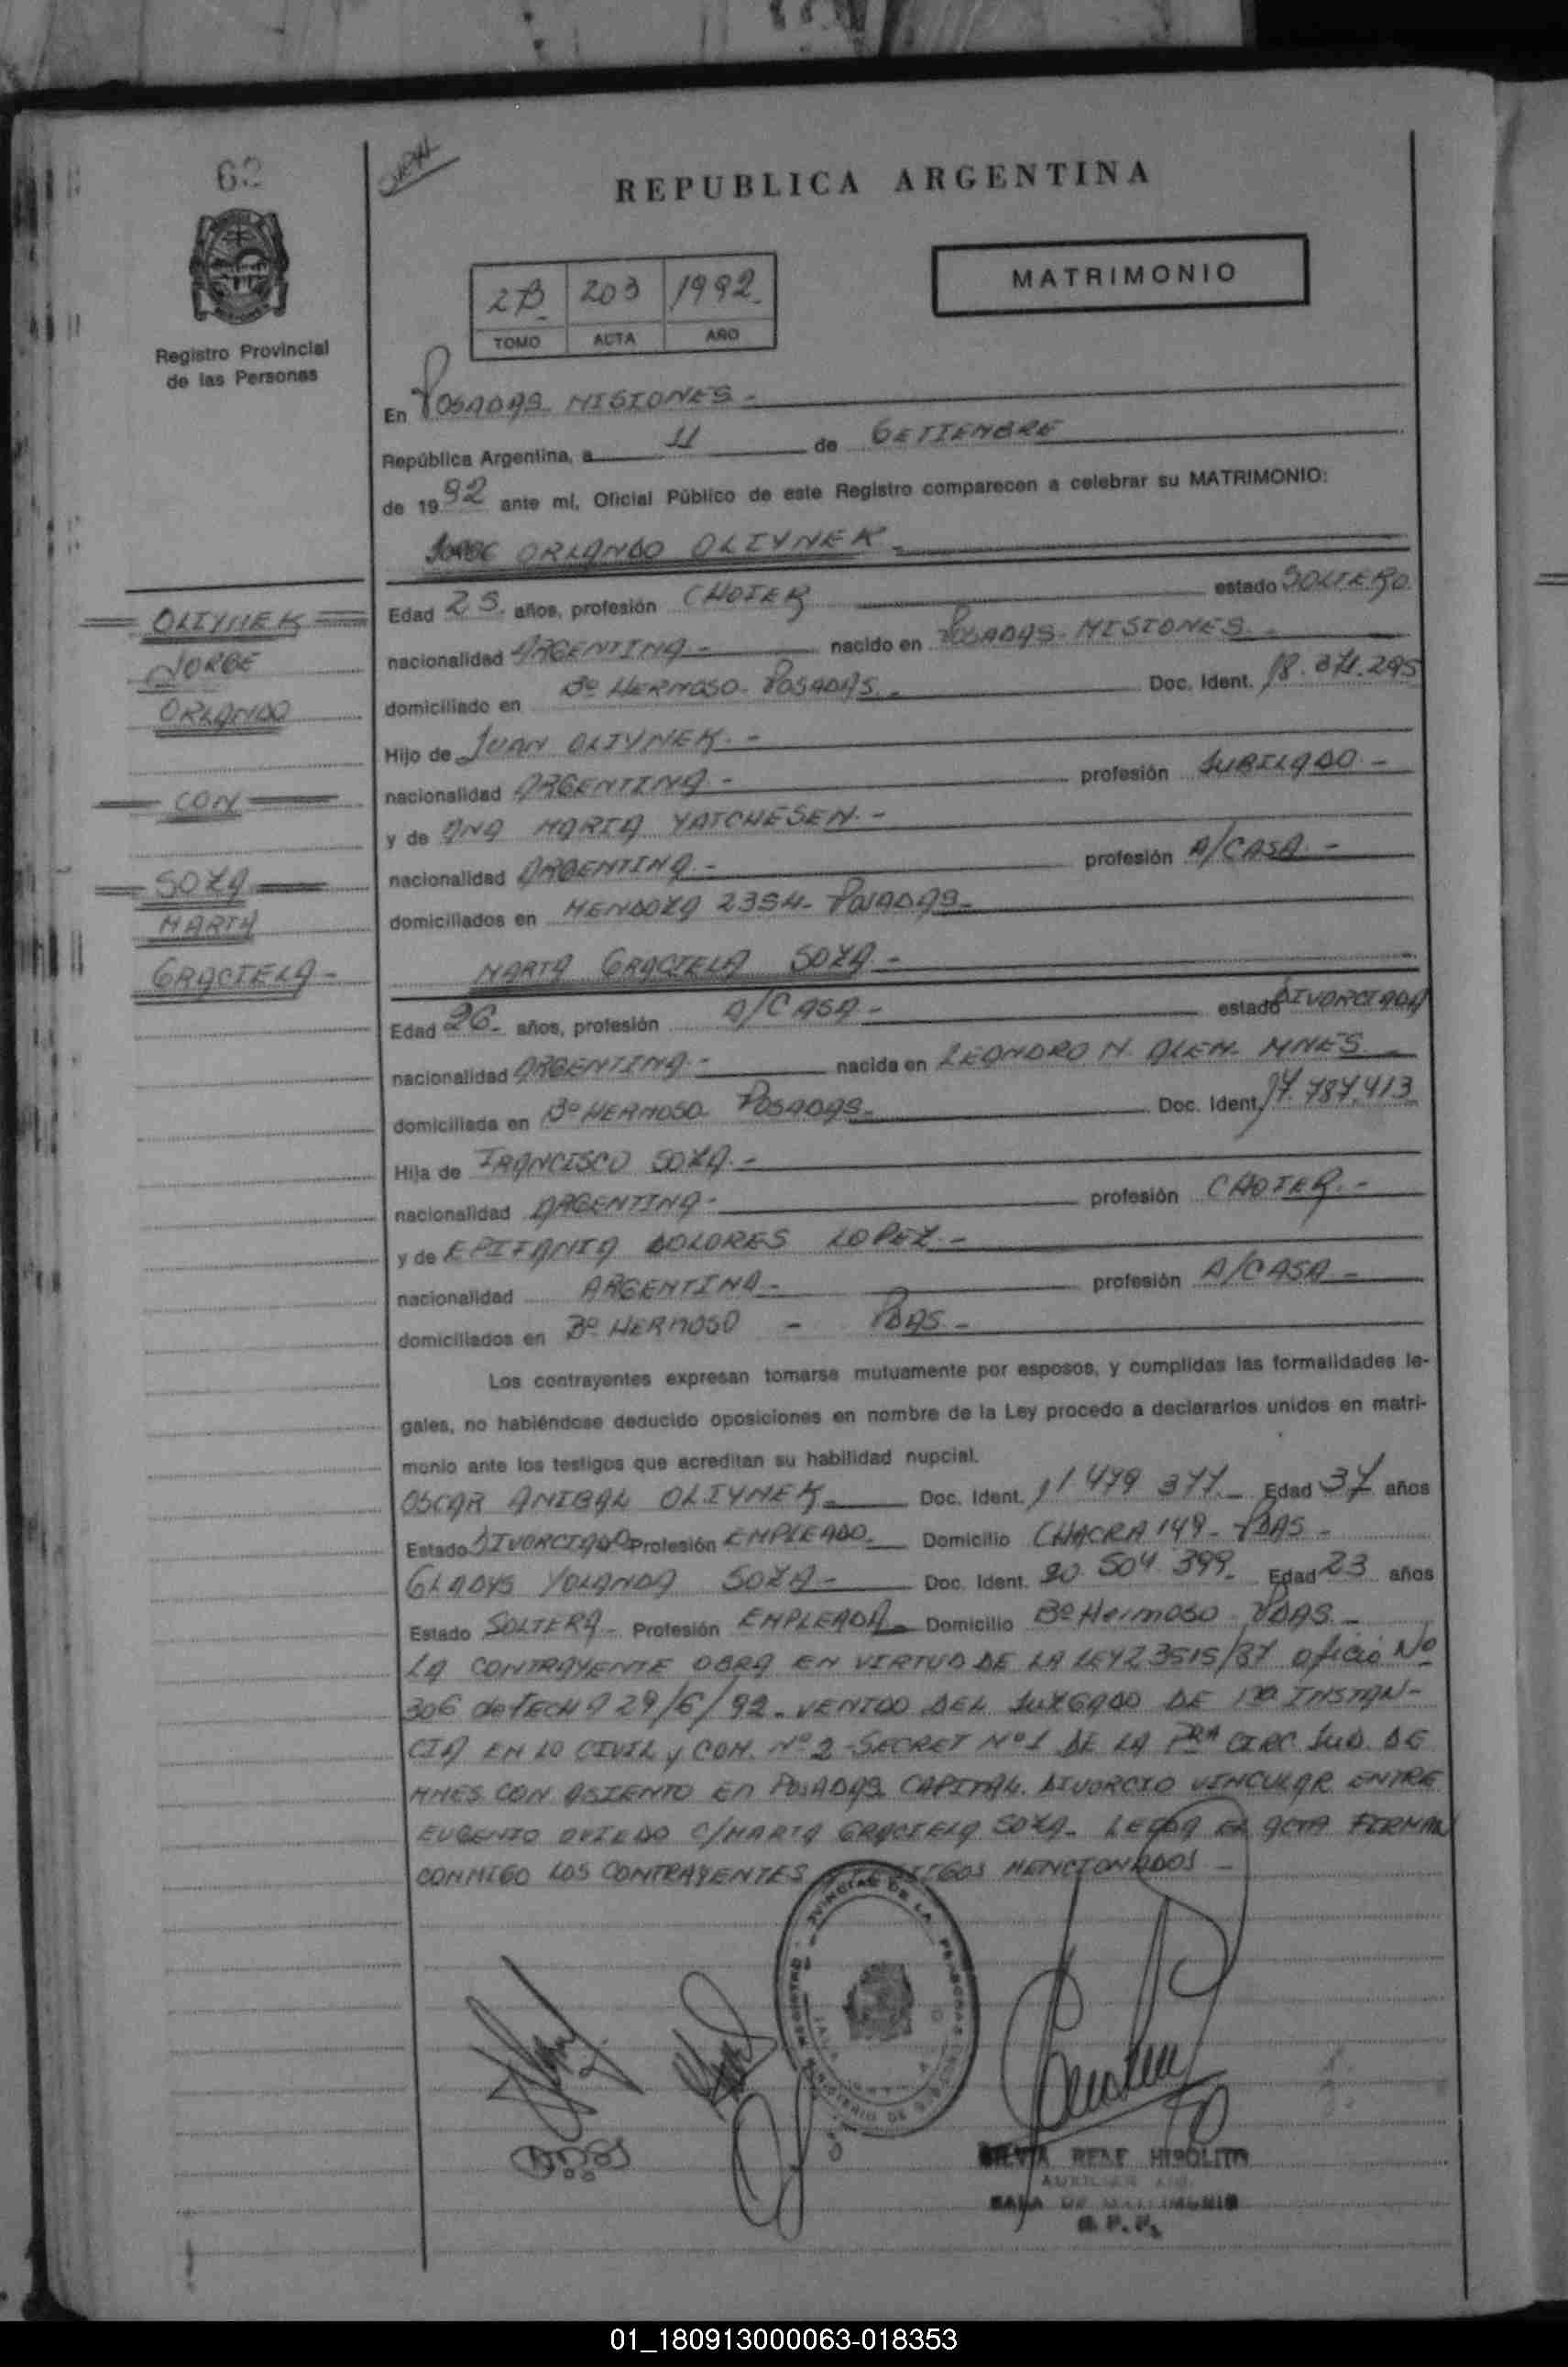 62
REPUBLICA ARGENTINA
MATRIMONIO
2B 203 1992
TOMO ACTA AÑO
Registro Provincial
de las Personas
En POSADAS MISIONES.-
República Argentina, a 11 de SETIEMBRE
de 1992 ante mí, Oficial Público de este Registro comparecen a celebrar su MATRIMONIO:
JORGE ORLANDO OLIYNEK.-
OLIYNEK
JORGE
ORLANDO
CON
SOZA
MARTA
GRACIELA-
Edad 25. años, profesión CHOFER estado SOLTERO
nacionalidad ARGENTINA.- nacido en POSADAS-MISIONES.-
domiciliado en Bº HERMOSO- POSADAS.- Doc. Ident. 18.371.295
Hijo de JUAN OLIYNEK.-
nacionalidad ARGENTINA.- profesión JUBILADO.-
y de ANA MARIA YATCHESEN.-
nacionalidad ARGENTINA.- profesión A/CASA.-
domiciliados en MENDOZA 2354- POSADAS-
MARTA GRACIELA SOZA.-
Edad 26.- años, profesión A/CASA- estado DIVORCIADA
nacionalidad ARGENTINA.- nacida en LEANDRO N. ALEM- MNES.-
domiciliada en Bº HERMOSO- POSADAS- Doc. Ident. 17.787.413
Hija de FRANCISCO SOZA.-
nacionalidad ARGENTINA- profesión CHOFER.-
y de EPIFANIA DOLORES LOPEZ.-
nacionalidad ARGENTINA- profesión A/CASA-
domiciliados en Bº HERMOSO - PDAS-
Los contrayentes expresan tomarse mutuamente por esposos, y cumplidas las formalidades le-
gales, no habiéndose deducido oposiciones en nombre de la Ley procedo a declararlos unidos en matri-
monio ante los testigos que acreditan su habilidad nupcial.
OSCAR ANIBAL OLIYNEK Doc. Ident. 11 479 377.- Edad 37 años
Estado DIVORCIADO Profesión EMPLEADO.- Domicilio CHACRA 149- PDAS-
GLADYS YOLANDA SOZA- Doc. Ident. 20.504.399.- Edad 23 años
Estado SOLTERA- Profesión EMPLEADA- Domicilio Bº Hermoso PDAS.-
LA CONTRAYENTE OBRA EN VIRTUD DE LA LEY 23515/87 oficio Nº
306 de FECHA 29/6/92- VENIDO DEL JUZGADO DE 1ra INSTAN-
CIA EN LO CIVIL y COM. Nº 2-SECRET Nº1 DE LA PRA CIRC. JUD. DE
MNES CON ASIENTO En POSADAS CAPITAL. DIVORCIO VINCULAR ENTRE
EUGENIO OVIEDO C/MARTA GRACIELA SOZA- LEIDA EL ACTA FIRMAN
CONMIGO LOS CONTRAYENTES Y TESTIGOS MENCIONADOS-
SILVIA RENE HIPOLITO
SALA DE MATRIMONIO
R. P. P.
01_180913000063-018353